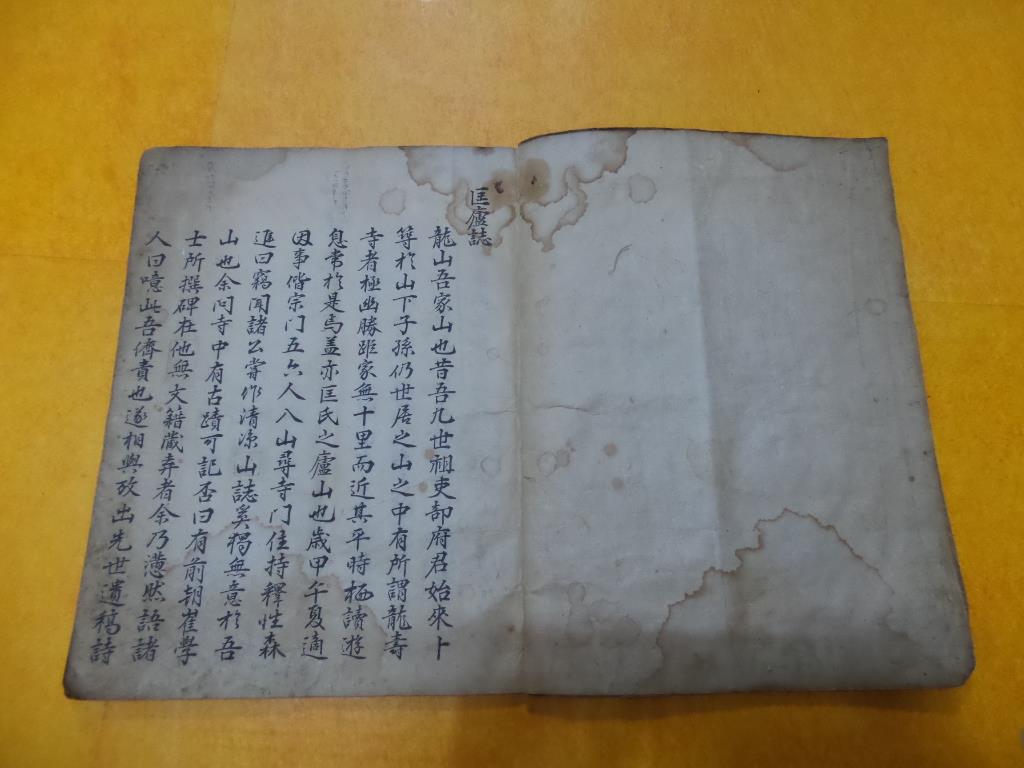 匡廬誌
龍山吾家山也昔吾九世祖吏部府君始來卜
筑於山下子孫仍世居之山之中有所謂龍壽
寺者極幽勝距家無十里而近其平時栖讀遊
息常於是焉盖亦匡氏之廬山也歲甲午夏適
因事偕宗门五六人入山尋寺门住持釋性森
進曰竊聞諸公甞作清凉山誌奚獨無意於吾
山也余问寺中有古蹟可記否曰有前朝崔學
士所撰碑在他無文籍藏弆者余乃憑然語諸
人曰噫此吾儕責也遂相與攷出先世遺稿詩